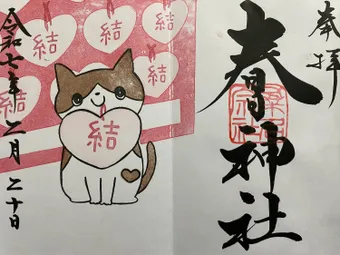 奉拝
春日神社
令和七年二月二十日
結
結
結
結
結
結